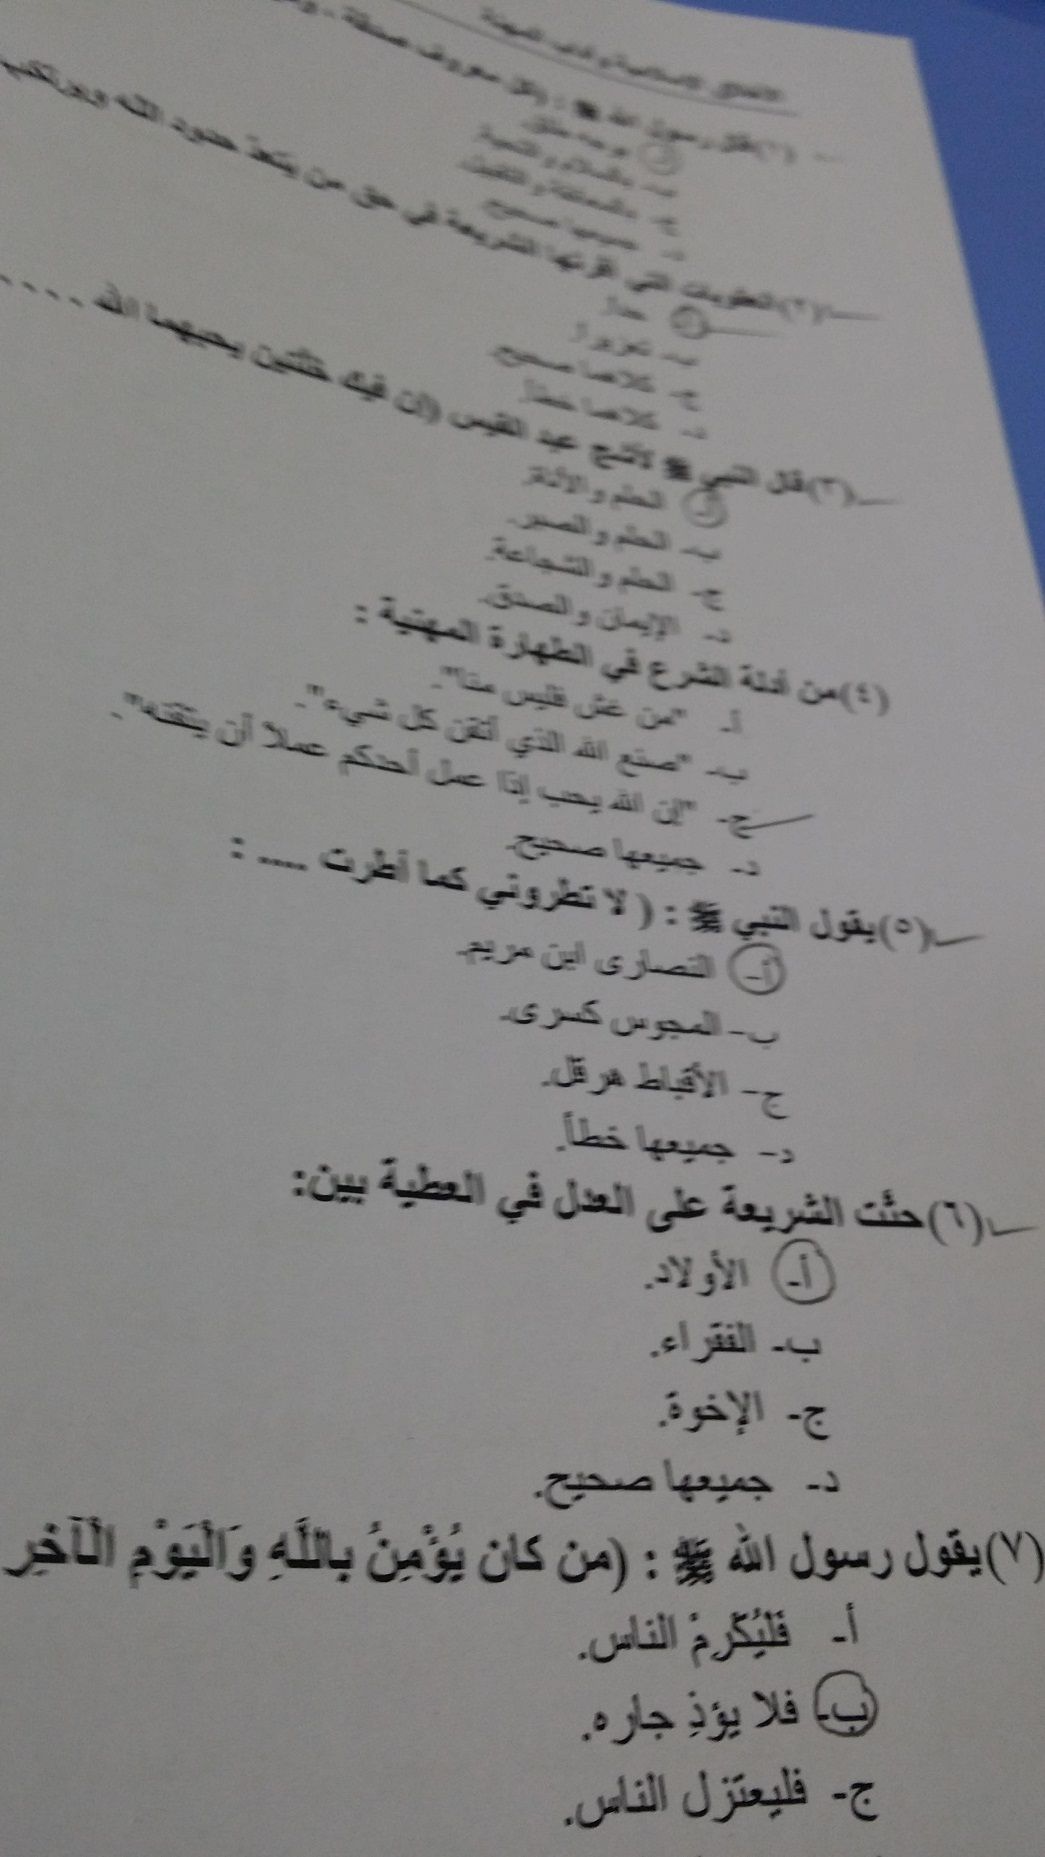 الأخلاق الإسلامية وآداب المهنة
(١) قال رسول الله ﷺ : (كل معروف صدقة ..
أ- بوجه طلق.
ب- بالسلام والتحية.
ج-
د- جميعها صحيح.
(٢) العقوبات التي أقرتها الشريعة في حق من يتعدّ حدود الله ويرتكب
أ- حدا.
ب- تعزيرا.
ج- كلاهما صحيح.
د- كلاهما خطأ.
(٣) قال النبي ﷺ لأشج عبد القيس (إن فيك خلتين يحبهما الله ....
أ- الحلم والأناة.
ب- الحلم والصبر.
ج- الحلم والشجاعة.
د- الإيمان والصدق.
(٤) من أدلة الشرع في الطهارة المهنية :
أ- "من غش فليس منا".
ب- "صنع الله الذي أتقن كل شيء".
ج- "إن الله يحب إذا عمل أحدكم عملا أن يتقنه".
د- جميعها صحيح.
(٥) يقول النبي ﷺ : ( لا تطروني كما أطرت .... :
أ- النصارى ابن مريم.
ب- المجوس كسرى.
ج- الأقباط هرقل.
د- جميعها خطأ.
(٦) حثت الشريعة على العدل في العطية بين:
أ- الأولاد.
ب- الفقراء.
ج- الإخوة.
د- جميعها صحيح.
(٧) يقول رسول الله ﷺ : (من كان يُؤْمِنُ بِاللَّهِ وَالْيَوْمِ الْآخِرِ
أ- فَلْيُكْرِمْ الناس.
ب- فلا يؤذِ جاره.
ج- فليعتزل الناس.